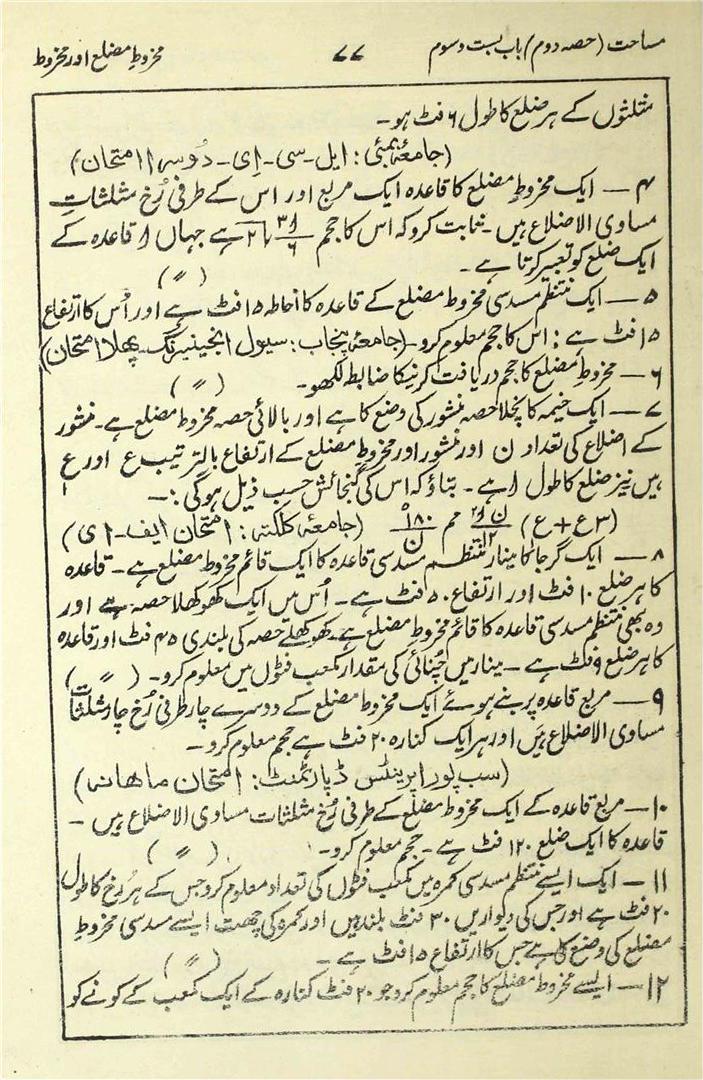 مساحت (حصہ دوم) باب بست و سوم ۷۷ مخروطِ مضلع اور مخروط
مثلثوں کے ہر ضلع کا طول ۶ فٹ ہو۔
(جامعۂ بمبئی: ایل۔سی۔ای۔ دُوسرا امتحان)
۴ — ایک مخروطِ مضلع کا قاعدہ ایک مربع اور اس کے طرفی رُخ مثلثاتِ
مساوی الاضلاع ہیں۔ ثابت کرو کہ اس کا حجم ا۳/۶ √۲ ہے جہاں ا قاعدہ کے
ایک ضلع کو تعبیر کرتا ہے۔ ( 〃 )
۵ — ایک منتظم مسدسی مخروطِ مضلع کے قاعدہ کا احاطہ ۱۵ فٹ ہے اور اُس کا ارتفاع
۱۵ فٹ ہے: اس کا حجم معلوم کرو۔ (جامعۂ پنجاب: سیول انجینیرنگ۔ پہلا امتحان)
۶ — مخروطِ مضلع کا حجم دریافت کرنیکا ضابطہ لکھو۔ ( 〃 )
۷ — ایک خیمہ کا نچلا حصہ منشور کی وضع کا ہے اور بالائی حصہ مخروطِ مضلع ہے۔ منشور
کے اضلاع کی تعداد ن اور منشور اور مخروطِ مضلع کے ارتفاع بالترتیب ع اور ع۱
ہیں نیز ضلع کا طول ا ہے۔ بتاؤ کہ اس کی گنجائش حسب ذیل ہوگی:۔
(۳ع + ع۱) ن ا۲/۱۲ مم ۱۸۰°/ن (جامعۂ کلکتہ: امتحان ایف۔ ای)
۸ — ایک گرجا کا مینار منتظم مسدسی قاعدہ کا ایک قائم مخروطِ مضلع ہے۔ قاعدہ
کا ہر ضلع ۱۰ فٹ اور ارتفاع ۵۰ فٹ ہے۔ اُس میں ایک کھوکھلا حصہ ہے اور
وہ بھی منتظم مسدسی قاعدہ کا قائم مخروطِ مضلع ہے۔ کھوکھلے حصہ کی بلندی ۴۵ فٹ اور قاعدہ
کا ہر ضلع ۹ فٹ ہے۔ مینار میں چُنائی کی مقدار مکعب فٹوں میں معلوم کرو۔ ( 〃 )
۹ — مربع قاعدہ پر بنے ہوئے ایک مخروطِ مضلع کے دوسرے چار طرفی رُخ چار مثلثات
مساوی الاضلاع ہیں اور ہر ایک کنارہ ۲۰ فٹ ہے حجم معلوم کرو۔
(سب پور اپرینٹس ڈپارٹمنٹ: امتحان ماہانہ)
۱۰ — مربع قاعدہ کے ایک مخروطِ مضلع کے طرفی رُخ مثلثات مساوی الاضلاع ہیں۔
قاعدہ کا ایک ضلع ۱۲۰ فٹ ہے۔ حجم معلوم کرو۔ ( 〃 )
۱۱ — ایک ایسے منتظم مسدسی کمرہ میں مکعب فٹوں کی تعداد معلوم کرو جس کے ہر رُخ کا طول
۲۰ فٹ ہے اور جس کی دیواریں ۳۰ فٹ بلند ہیں اور کمرہ کی چھت ایسے مسدسی مخروطِ
مضلع کی وضع کی ہے جس کا ارتفاع ۱۵ فٹ ہے۔ ( 〃 )
۱۲ — ایسے مخروطِ مضلع کا حجم معلوم کرو جو ۲۰ فٹ کنارہ کے ایک مکعب کے کونے کو